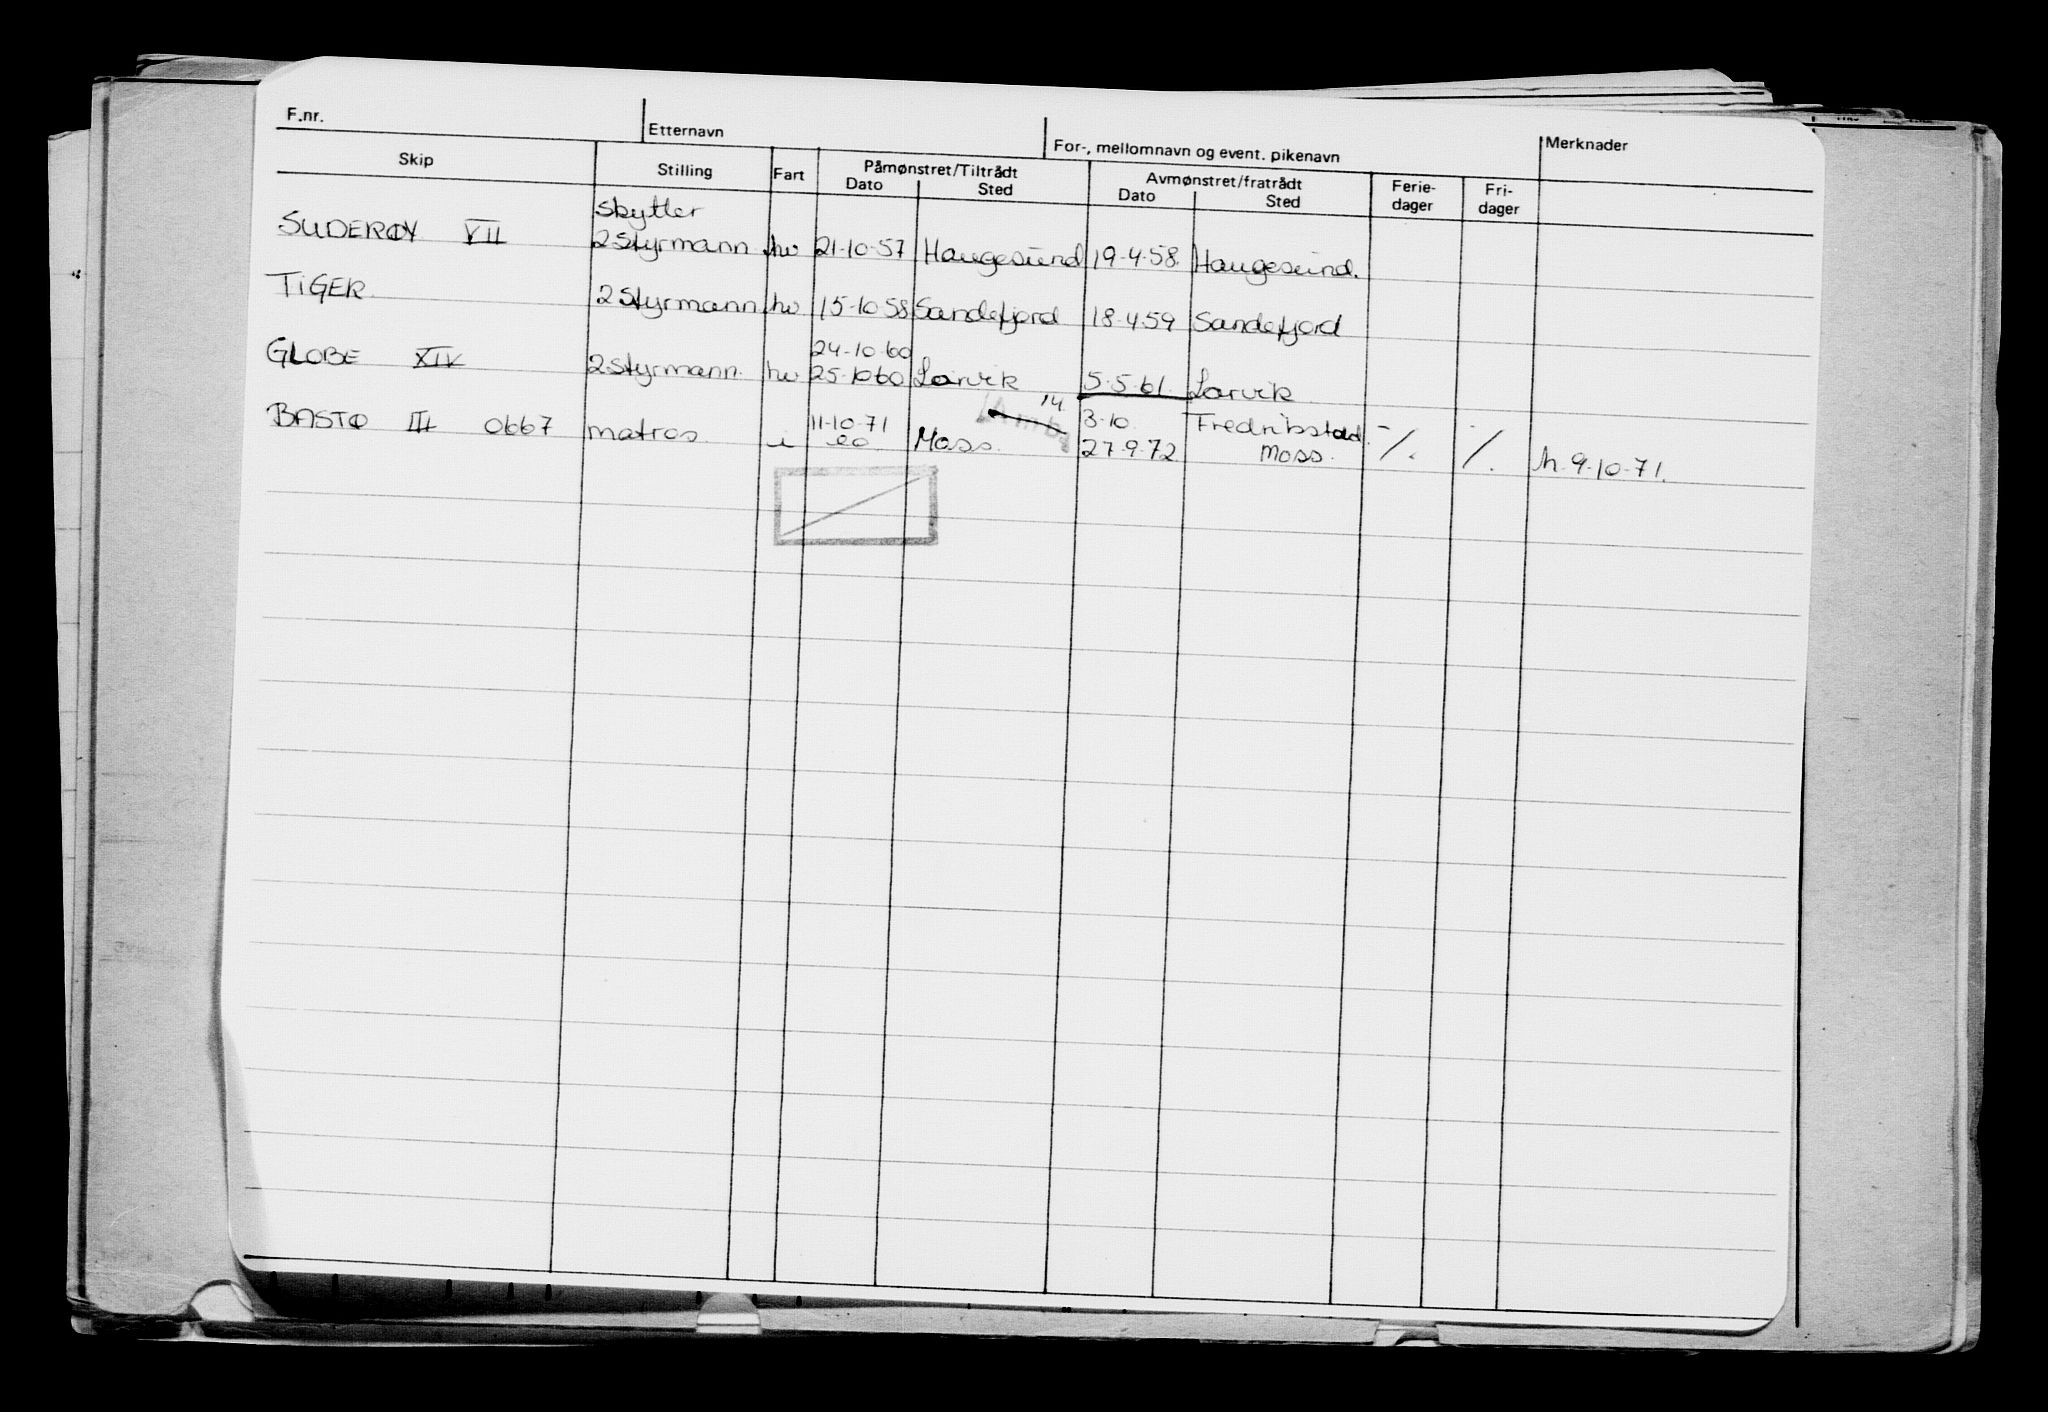 F.nr. Etternavn For-, mellomnavn og event. pikenavn Merknader
Skip Stilling Fart Påmønstret/Tiltrådt Avmønstret/fratrådt Ferie- Fri-
Dato Sted Dato Sted dager dager
Skytter
SUDERØY VII 2 Styrmann hv 21-10-57 Haugesund 19-4-58. Haugesund.
TIGER 2 Styrmann hv 15-10 58 Sandefjord 18-4-59 Sandefjord
24-10-60
GLOBE XIV 2 Styrmann. hv 25-10 60 Larvik 5-5-61. Larvik
14 11-10-71 3-10 Fredrikstad.
BASTØ III 0667 matros. i Moss. 27-9-72 Moss. -/. -/. h. 9-10-71.